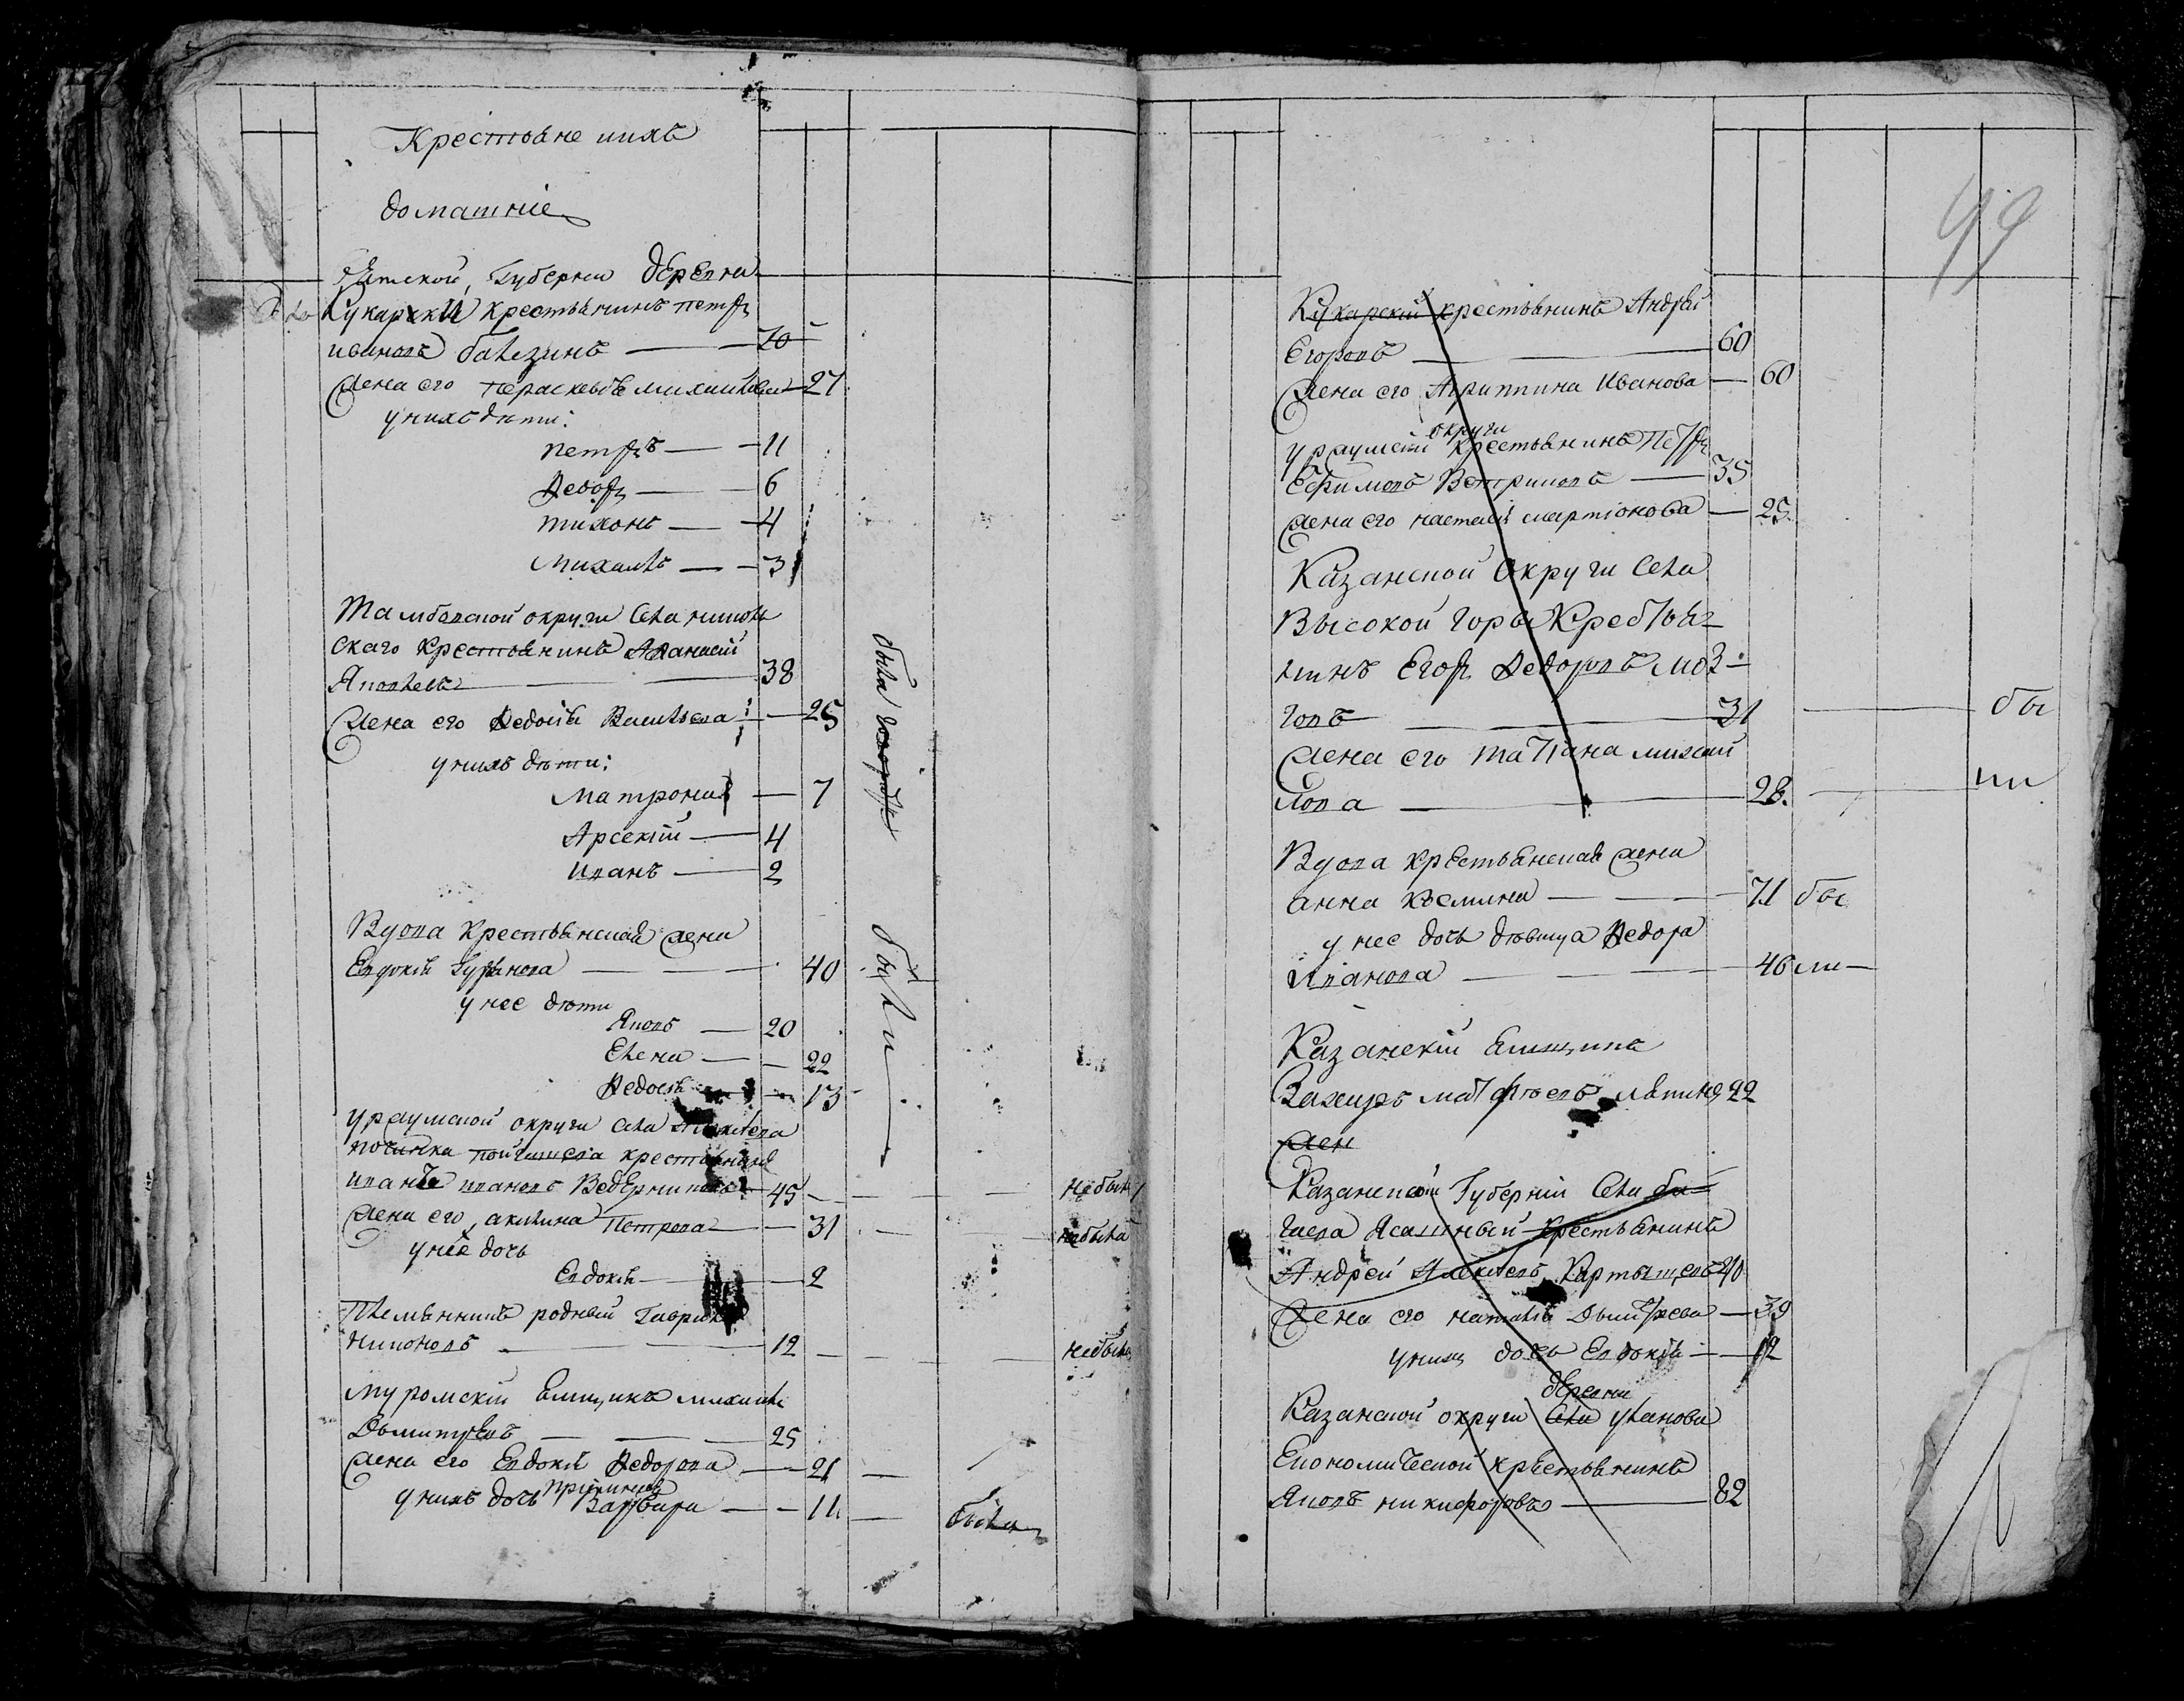 Крестьяне ихъ
домашніе
Вятской Губерніи деревни
Кукарки крестьянинъ петръ
ивановъ балезинъ — 70
Жена его пераскевья михайлова — 27
у нихъ дети:
петръ — 11
Ѳедоръ — 6
тихонъ — 4
Михаилъ — 3
Тамбовской округи села
скаго крестьянинъ Аѳанасий
Яковлевъ — 38
Жена его Ѳедосья Васильева — 25
у нихъ дети:
Матрона — 7
Арсений — 4
Иванъ — 2
Вдова крестьянская жена
Евдокия Гурьянова — 40
у нее дети
Яковъ — 20
Елена — 22
Ѳедосья — 13
была
были
уржумской округи села
починка крестьянинъ
иванъ ивановъ Ведерниковъ — 45 — не были
Жена его акилина Петрова — 31 — не была
у нее дочь
Евдокия — 2
Племянникъ родный Гаврила
Никоновъ — 12 — не былъ
муромский Ямщикъ михаила
Дмитревъ — 25
Жена его Евдокия Ѳедорова — 21
у нихъ дочь
Варвара — 11 — была
99
Кукарский крестьянинъ Андрей
Егоровъ — 60
Жена его Агрипина Иванова — 60
округи
уржумской крестьянинъ Петръ
Ефимовъ — 35
Жена его настасья мартіонова — 25
Казанской округи села
Высокой горы Крестья-
нинъ Егоръ Ѳедоровъ моз-
говъ — 31 — бы
Жена его татіана михай
лова — 28 — ли
Вдова крестьянская жена
анна козмина — 71 бы
у нее дочь девица Ѳедора
Иванова — 46 ли —
Казанскій Ямщикъ
Захаръ матфеевъ 22
жен
Казанской Губерній села
Ясашный крестьянинъ
Андрей Алексеевъ Картышевъ 40
Жена его наталья Дмитрева — 39
у нихъ дочь Евдокія — 12
деревни
Казанской округи села уланова
Економической крестьянинъ
Яковъ никифоровъ — 82